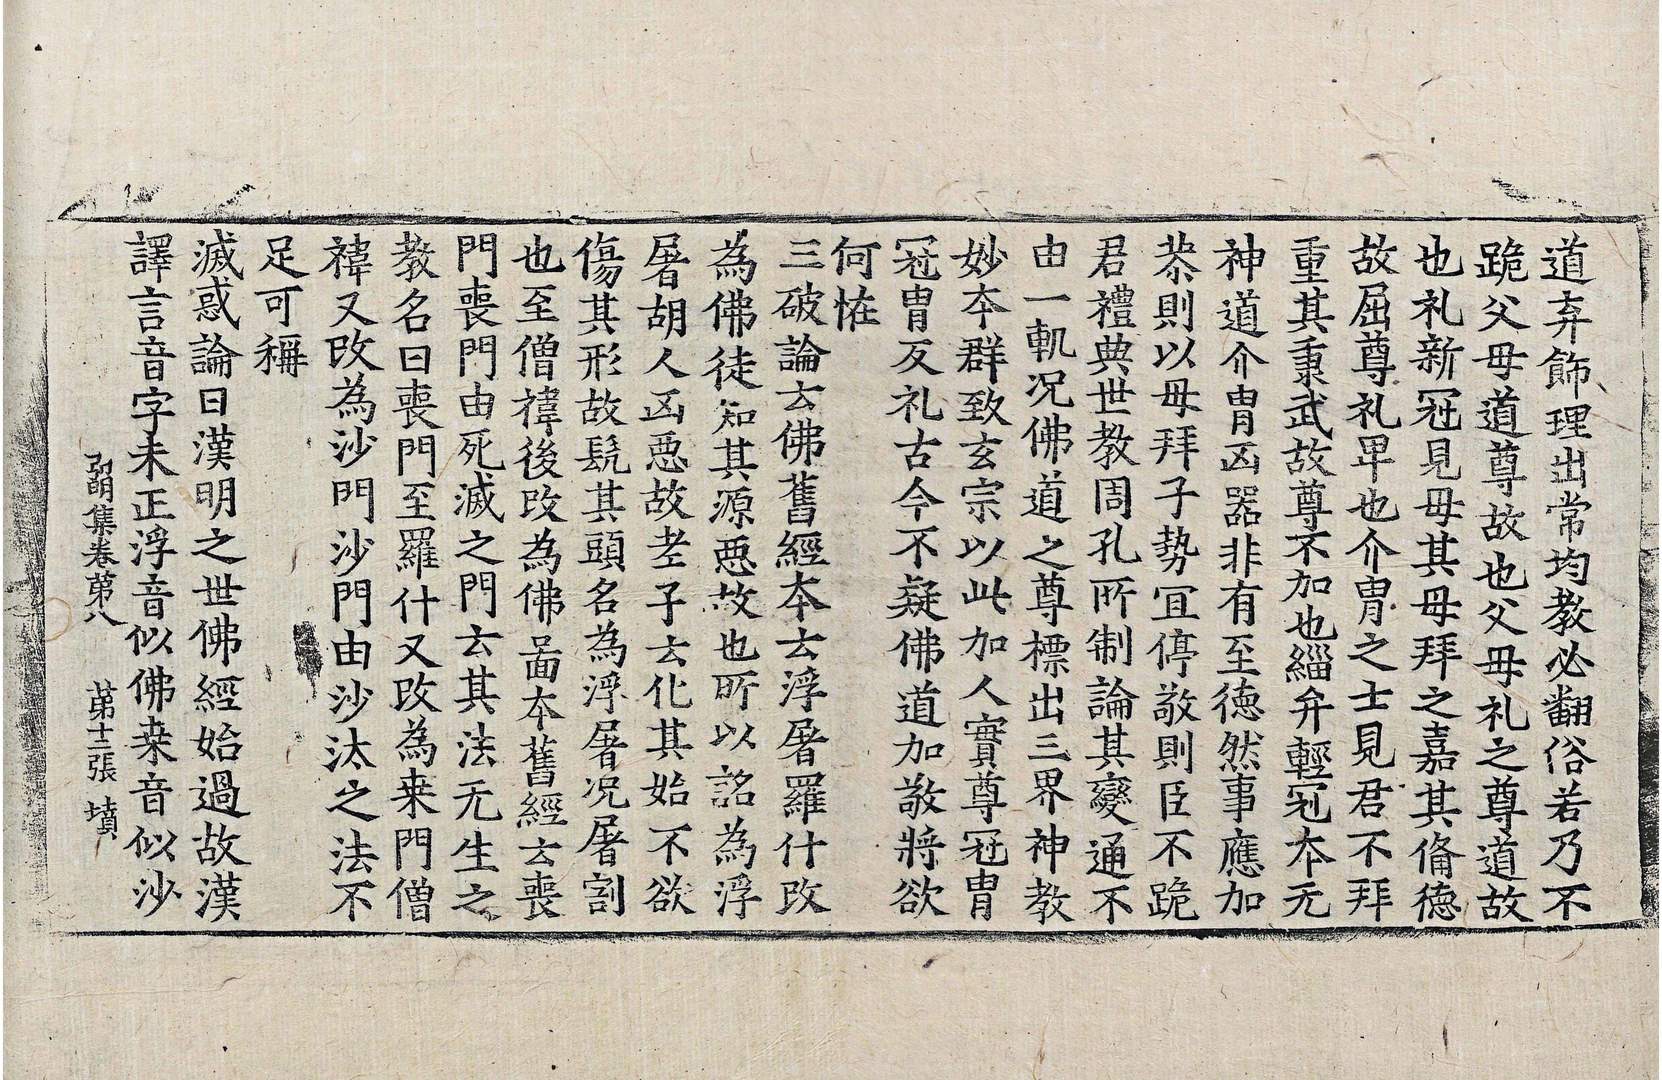 道弃飾理出常均教必翻俗若乃不
跪父母道尊故也父母礼之尊道故
也礼新冠見母其母拜之嘉其脩德
故屈尊礼卑也介冑之士見君不拜
重其秉武故尊不加也緇弁輕冠本无
神道介冑凶器非有至德然事應加
恭則以母拜子勢冝停敬則臣不跪
君禮典世教周孔所制論其變通不
由一軌况佛道之尊標出三界神教
妙本群致玄宗以此加人實尊冠冑
冠冑及礼古今不疑佛道加敬將欲
何恠
三破論云佛舊經本云浮屠羅什改
為佛徒知其源惡故也所以詺為浮
屠胡人凶惡故老子云化其始不欲
傷其形故髡其頭名為浮屠况屠割
也至僧禕後改為佛啚本舊經云喪
門喪門由死滅之門云其法无生之
教名曰喪門至羅什又改為桒門僧
禕又改為沙門沙門由沙汰之法不
足可稱
滅惑論曰漢明之世佛經始過故漢
譯言音字未正浮音似佛桒音似沙
弘明集卷苐八 苐十二張 墳